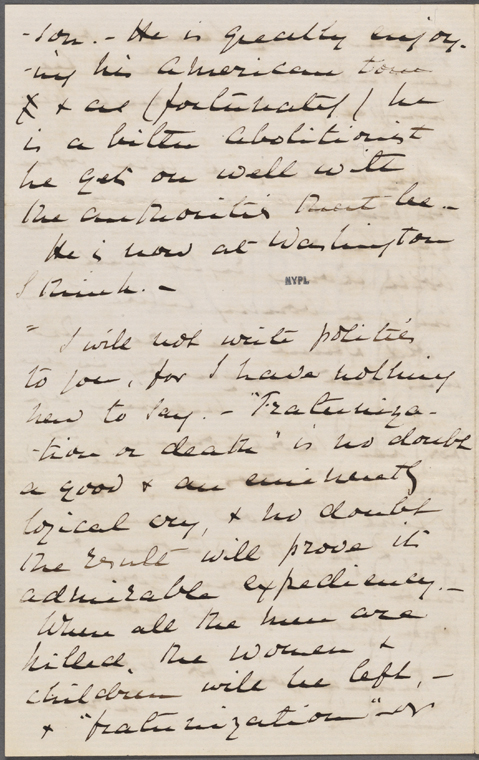 -son. - He is greatly enjoy-
-ing his American tour
& as (fortunately) he
is a bitter abolitionist
he gets on well with
the authorities that be. -
He is now at Washington
I think. -
NYPL
" I will not write politics
to you, for I have nothing
new to say. - "Fraterniza-
-tion or death" is no doubt
a good & an eminently
logical cry, & no doubt
the result will prove its
admirable expediency. -
When all the men are
killed, the women &
children will be left, -
& "fraternization" - or